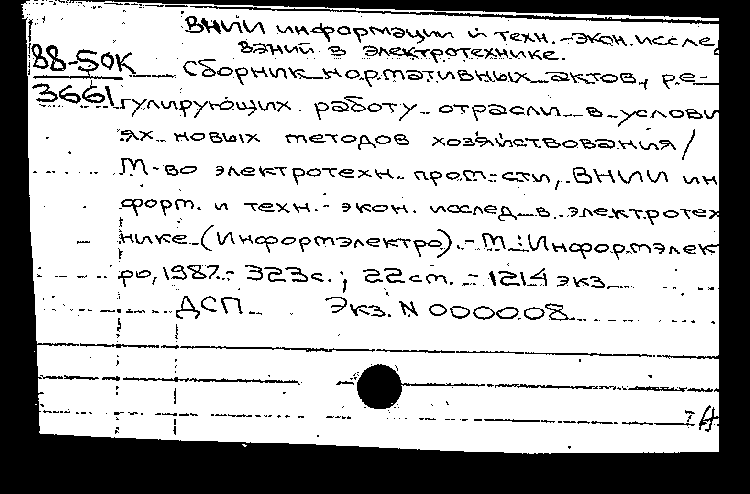 ВНИИ информации и техн.-экон.иссле
88-50К
ваний в электротехнике.
Сборник нормативных актов, ре-
3661
гулирующих работу отрасли в услови
ях новых методов хозяйствования/
М-во электротехн. пром-сти, ВНИИ ин
форм. и техн.- экон. исслед в электротех
нике (Информэлектро).-М.:Информэлект
ро, 1987.- 323с.; 22 см. - 1214 экз
ДСП Экз. N 000008